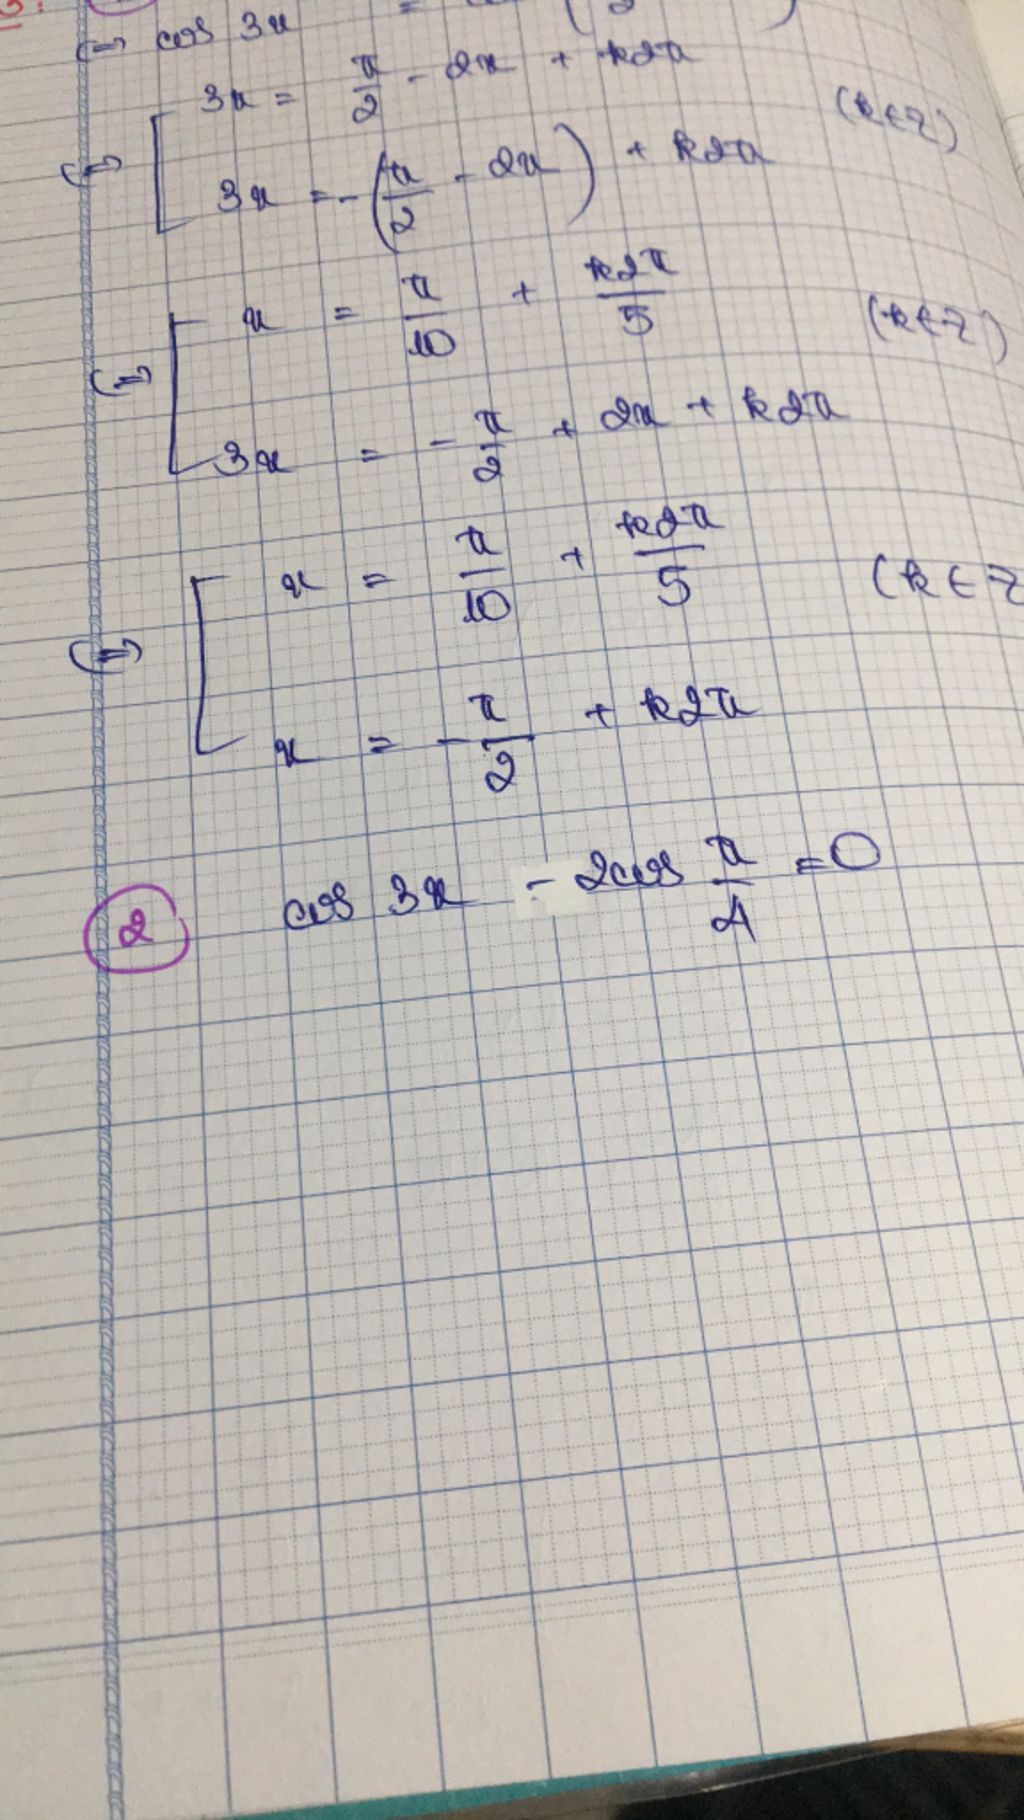 ⇔ cos 3x = 
3x = π/2 - 2x + k2π
⇔ (k ∈ Z)
3x = -(π/2 - 2x) + k2π
x = π/10 + k2π/5
⇔ (k ∈ Z)
3x = -π/2 + 2x + k2π
x = π/10 + k2π/5 (k ∈ Z
⇔
x = -π/2 + k2π
2 cos 3x - 2cos π/4 = 0